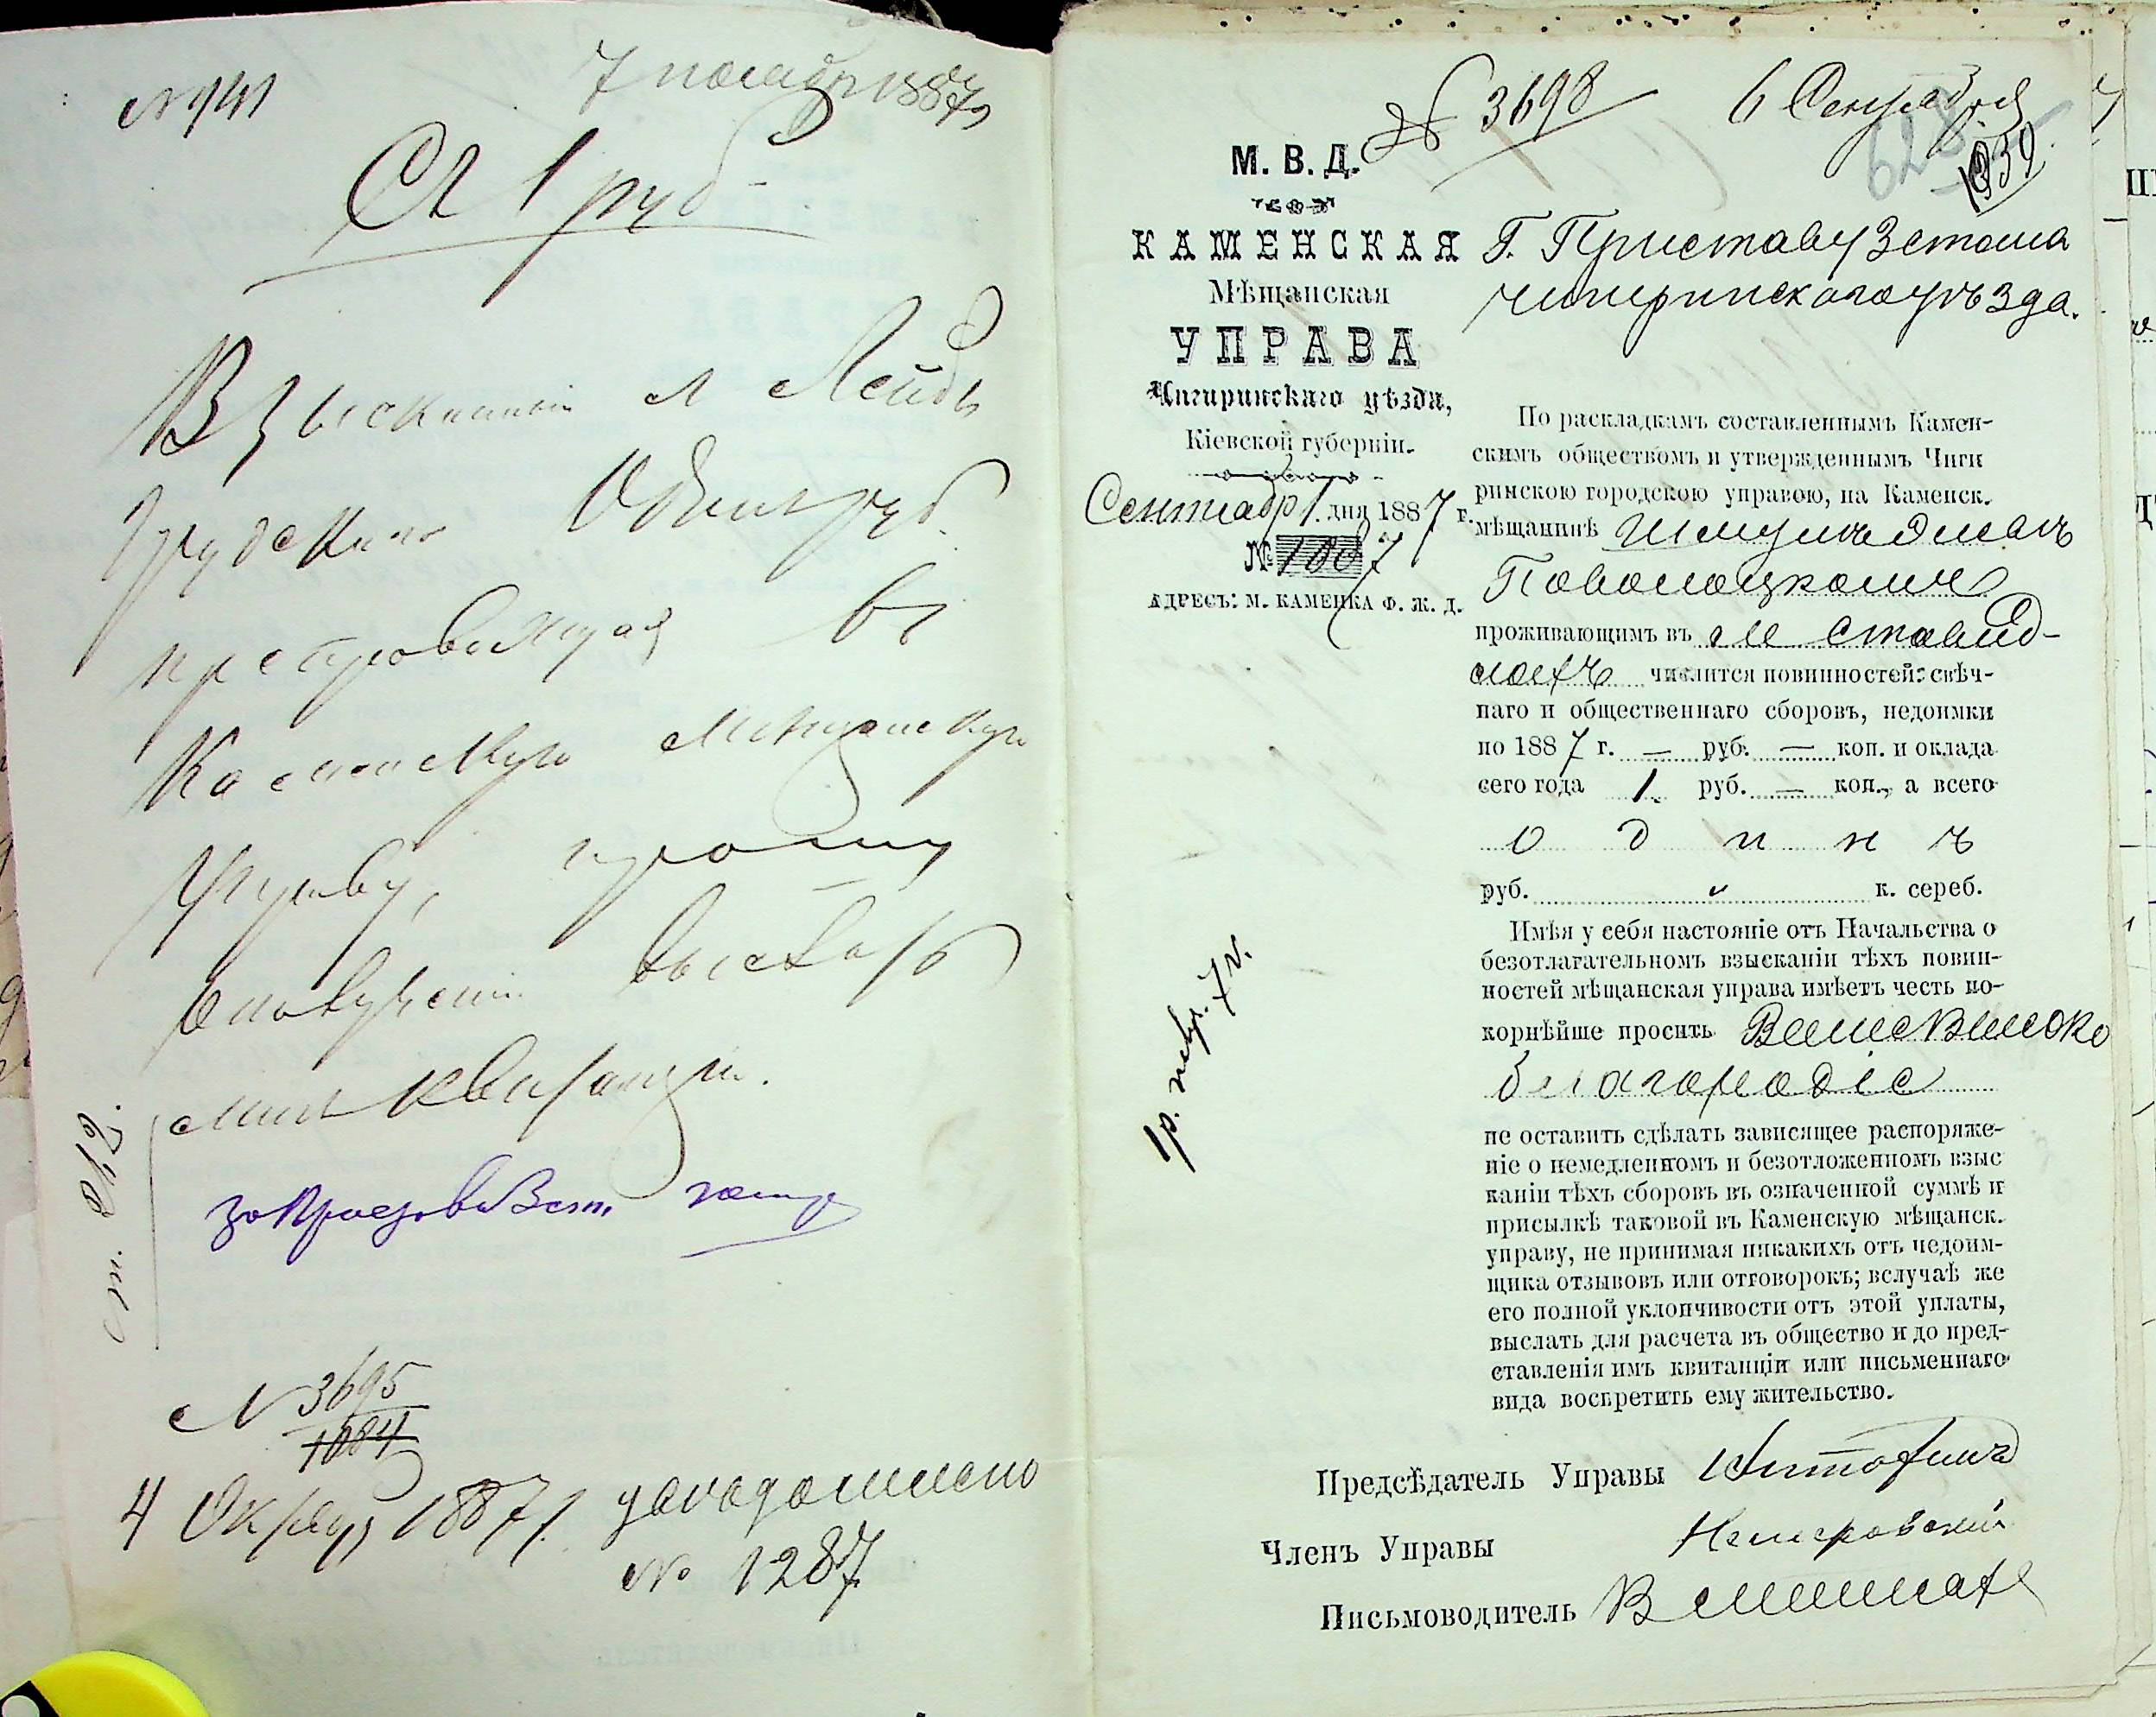 № 941
7 ноября 1887 г.
Съ 1 руб.
Взысканный съ Лейбы
Одинъ руб.
препровождая въ
Каменскую Мѣщанскую
Управу, прошу
о полученіи выслать
мнѣ квитанцію.
За Пристава
№ 3695
1084
4 Октября 1887 г. уведомлено
№ 1287
№ 3698
6 Сентября
М. В. Д.
КАМЕНСКАЯ
Мѣщанская
УПРАВА
Чигиринскаго уѣзда,
Кіевской губерніи.
Сентября 1 дня 1887 г.
№ 1087
АДРЕСЪ: М. КАМЕНКА Ф. Ж. Д.
1 р.
Г. Приставу 3 стана
Чигиринскаго уѣзда.
По раскладкамъ составленнымъ Камен-
скимъ обществомъ и утвержденнымъ Чиги
ринскою городскою управою, на Каменск.
мѣщанинѣ
Поволоцкомъ
проживающимъ въ м
числится повинностей: свѣч-
наго и общественнаго сборовъ, недоимки
по 1887 г. — руб. — коп. и оклада
сего года 1 руб. — коп., а всего
одинъ
руб. " к. сереб.
Имѣя у себя настояніе отъ Начальства о
безотлагательномъ взысканіи тѣхъ повин-
ностей мѣщанская управа имѣетъ честь по-
корнѣйше просить Ваше Высоко
благородіе
не оставить сдѣлать зависящее распоряже-
ніе о немедленномъ и безотложенномъ взыс
каніи тѣхъ сборовъ въ означенной суммѣ и
присылкѣ таковой въ Каменскую мѣщанск.
управу, не принимая никакихъ отъ недоим-
щика отзывовъ или отговорокъ; вслучаѣ же
его полной уклончивости отъ этой уплаты,
выслать для расчета въ общество и до пред-
ставленія имъ квитанціи или письменнаго
вида воспретить ему жительство.
Предсѣдатель Управы
Членъ Управы
Письмоводитель